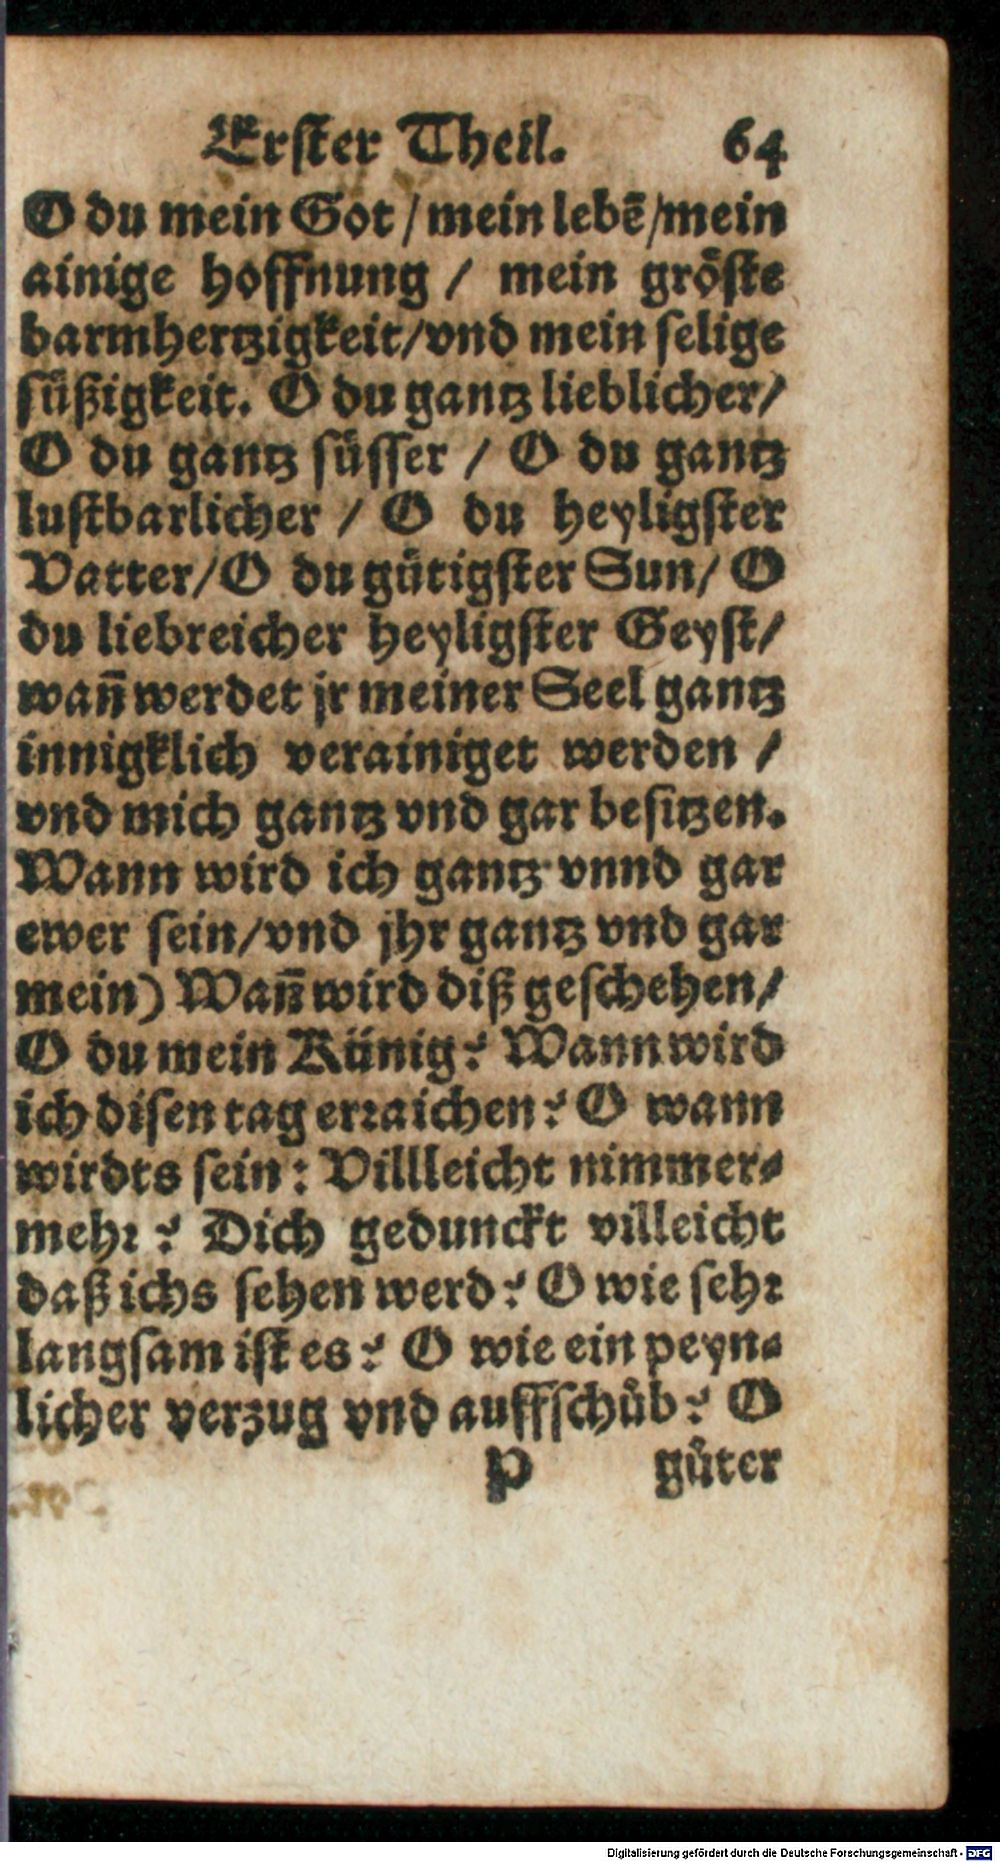 Erster Theil. 64
O du mein Got / mein lebē / mein
ainige hoffnung / mein gröste
barmhertzigkeit / vnd mein selige
süßigkeit. O du gantz lieblicher /
O du gantz süsser / O du gantz
lustbarlicher / O du heyligster
Vatter / O du gütigster Sun / O
du liebreicher heyligster Geyst /
wañ werdet jr meiner Seel gantz
innigklich verainiget werden /
vnd mich gantz vnd gar besitzen.
Wann wird ich gantz vnnd gar
ewer sein / vnd jhr gantz vnd gar
mein) Wañ wird diß geschehen /
O du mein Künig? Wann wird
ich disen tag erraichen? O wann
wirdts sein: Villleicht nimmer⸗
mehr? Dich gedunckt villeicht
daß ichs sehen werd? O wie sehr
langsam ist es? O wie ein peyn⸗
licher verzug vnd auffschůb? O
P gůter
Digitalisierung gefördert durch die Deutsche Forschungsgemeinschaft - DFG